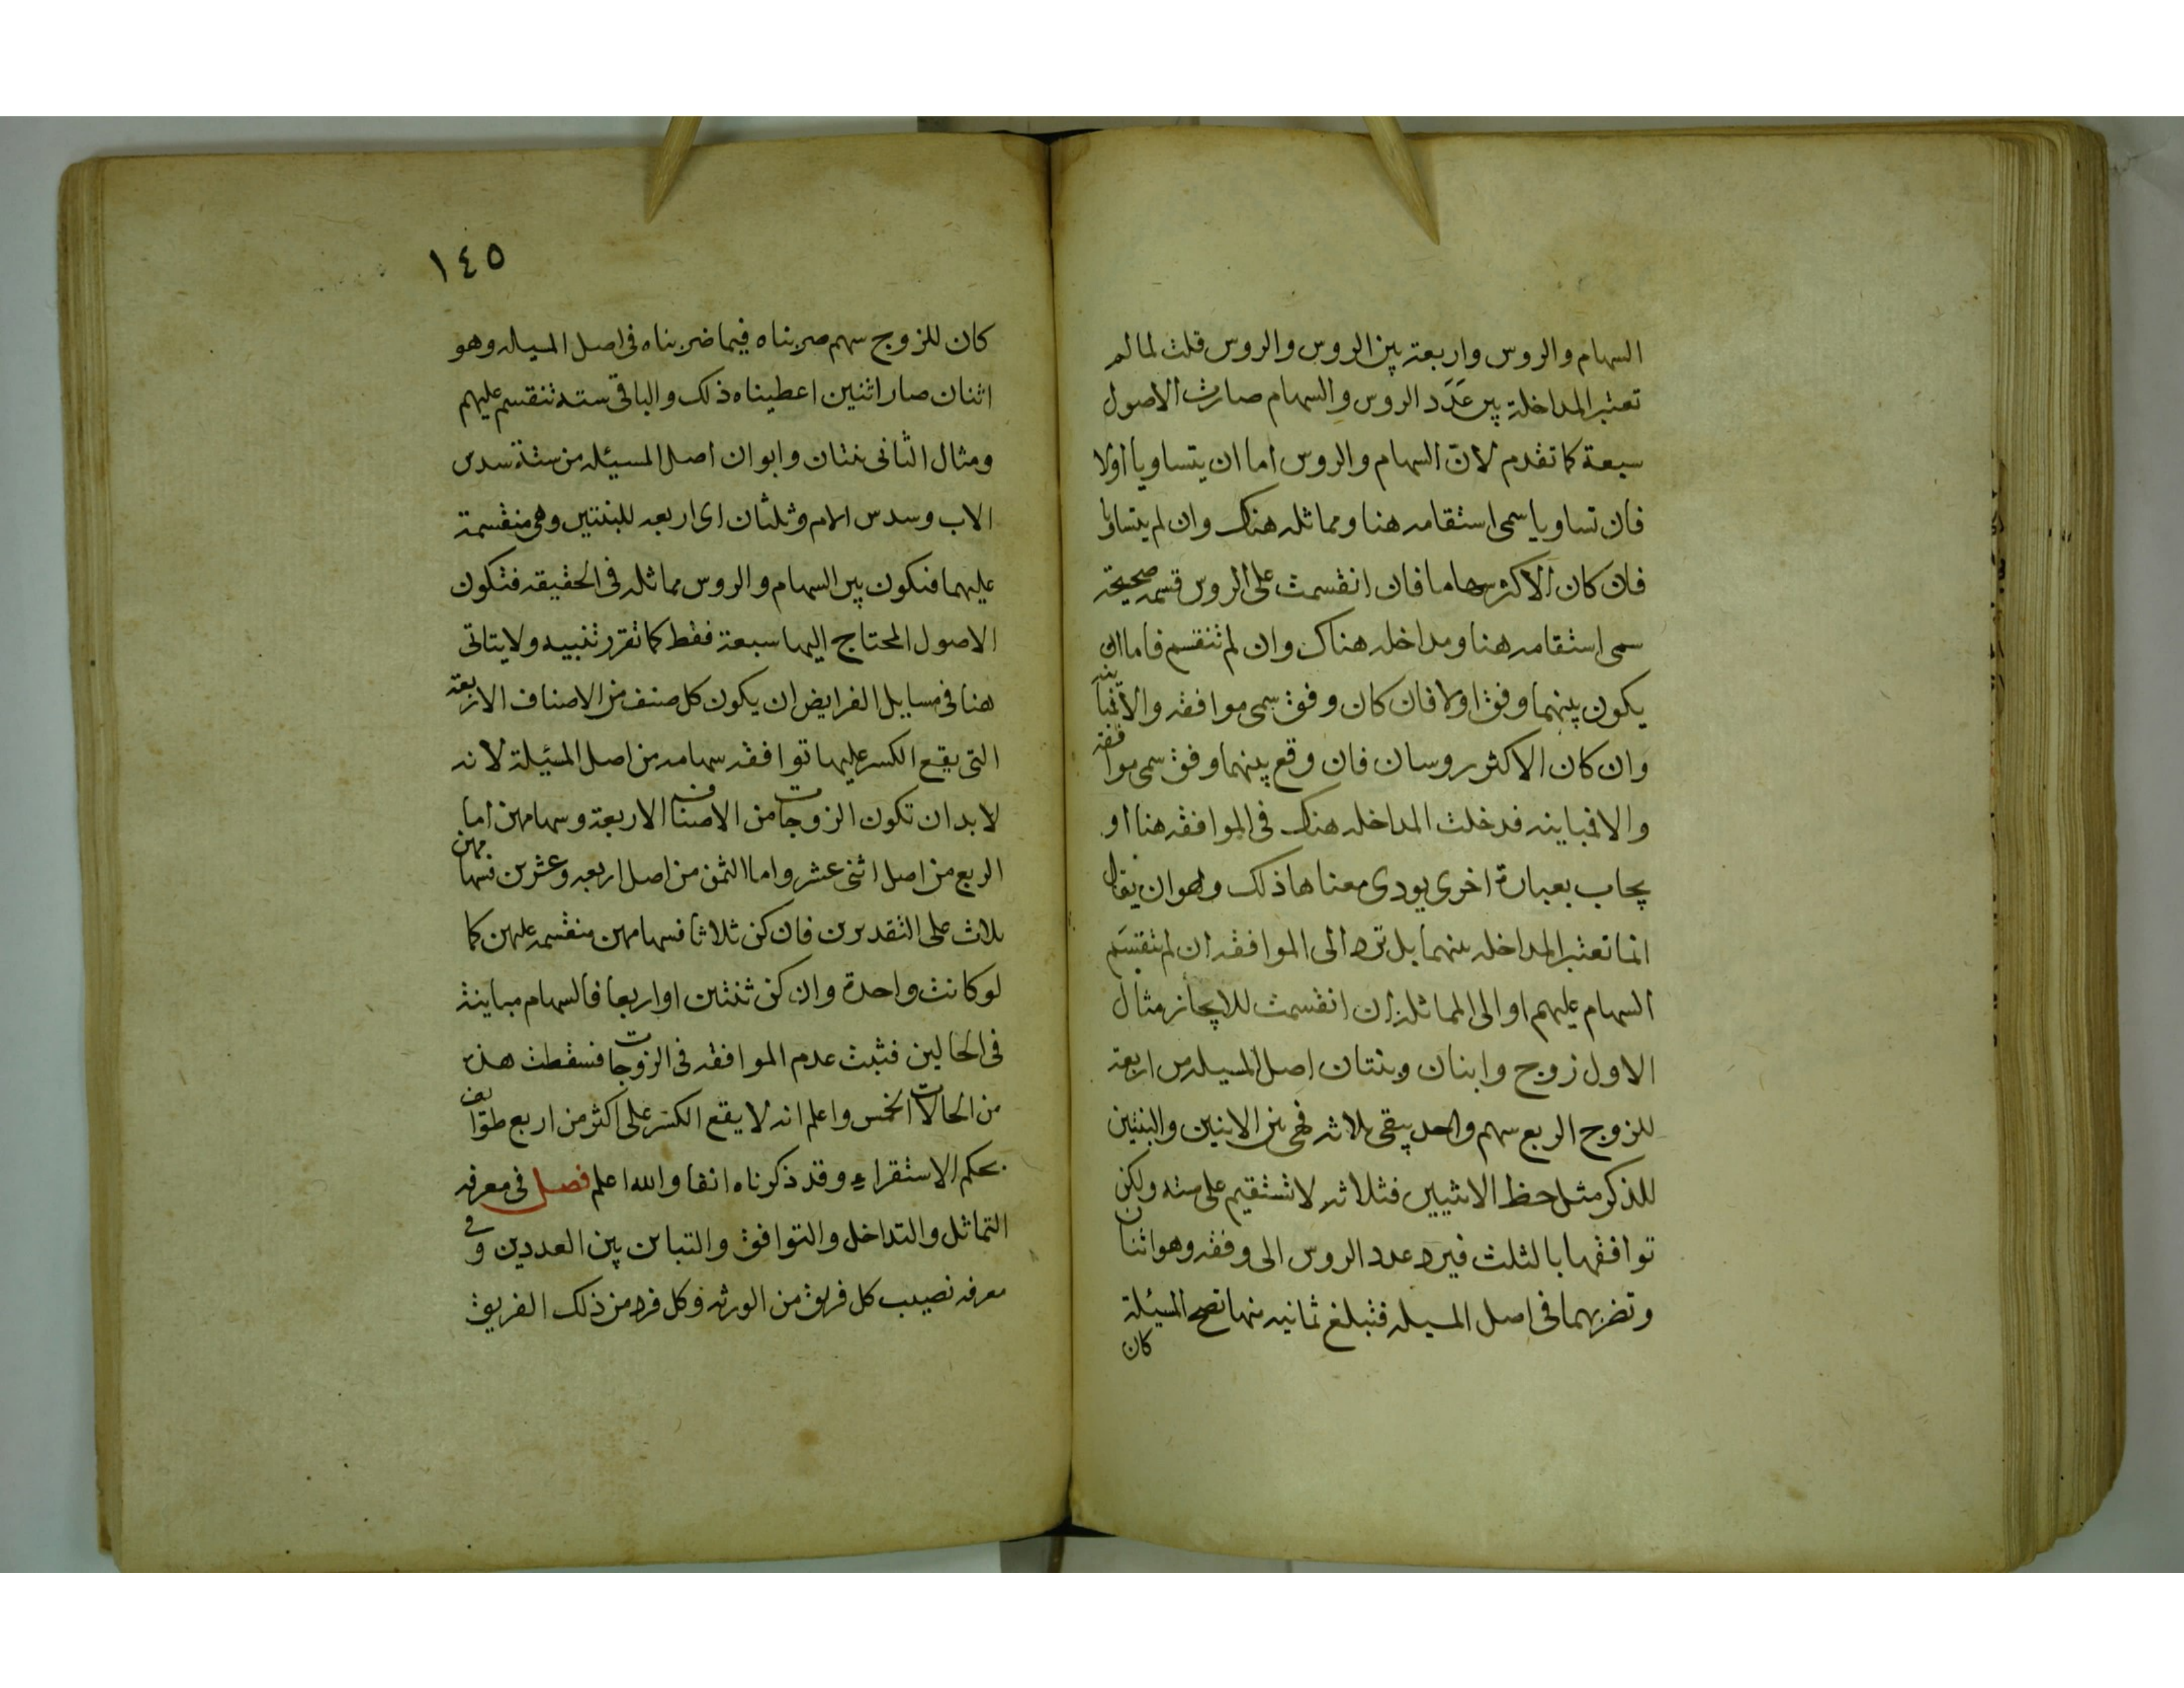 السهام والروس واربعة بين الروس والروس قلت لما لم
تعتبر المداخلة بين عَدَد الروس والسهام صارت الاصول
سبعة كما تقدم لانّ السهام والروس اما ان يتساويا اولا
فان تساويا سمى استقامه هنا ومماثله هناك وان لم يتساويا
فان كان الاكثر سهاما فان انقسمت على الروس قسمه صحيحة
سمى استقامه هنا ومداخله هناك وان لم تنقسم فاما ان
يكون بينهما وفق اولا فان كان وفق سمى موافقه والا فمباينه
وان كان الاكثر روسان فان وقع بينهما وفق سمى موافقة
والا فمباينه فدخلت المداخله هناك فى الموافقه هنا او
يجاب بعبارة اخرى يودى معناها ذلك وهو ان يقال
انما تعتبر المداخله بينهما بل ترد الى الموافقه ان لم تنقسم
السهام عليهم او الى المماثلة ان انقسمت للايجاز مثال
الاول زوج وابنان وبنتان اصل المسيله من اربعة
للزوج الربع سهم واحد يبقى ثلاثه فهى بين الابنين والبنتين
للذكر مثل حظ الانثيين فثلاثه لا تستقيم على سته ولكن
توافقها بالثلث فيرد عدد الروس الى وفقه وهو اثنان
وتضربهما فى اصل المسيله فتبلغ ثمانيه منها تصح المسيئلة
كان
١٤٥
كان للزوج سهم ضربناه فيما ضربناه فى اصل المسيله وهو
اثنان صار اثنين اعطيناه ذلك والباقى سته تنقسم عليهم
ومثال الثانى بنتان وابوان اصل المسيئله من ستة سدس
الاب وسدس الام وثلثان اى اربعه للبنتين وهى منقسمة
عليهما فتكون بين السهام والروس مماثله فى الحقيقه فتكون
الاصول المحتاج اليها سبعة فقط كما تقرر تنبيه ولا يتاتى
هنا فى مسايل الفرايض ان يكون كل صنف من الاصناف الاربعة
التى يقع الكسر عليها توافقه سهامه من اصل المسئيلة لانه
لا بد ان تكون الزوجات من الاصناف الاربعة وسهامهن اما
الربع من اصل اثنى عشر واما الثمن من اصل اربعه وعشرين فسهامهن
ثلاث على التقديرين فان كن ثلاثا فسهامهن منقسمه عليهن كما
لو كانت واحدة وان كن ثنتين او اربعا فالسهام مباينة
فى الحالين فثبت عدم الموافقه فى الزوجات فسقطت هذه
من الحالات الخمس واعلم انه لا يقع الكسر على اكثر من اربع طوايف
بحكم الاستقراء وقد ذكرناه انفا والله اعلم فصل فى معرفه
التماثل والتداخل والتوافق والتباين بين العددين وفى
معرفه نصيب كل فريق من الورثه وكل فرد من ذلك الفريق